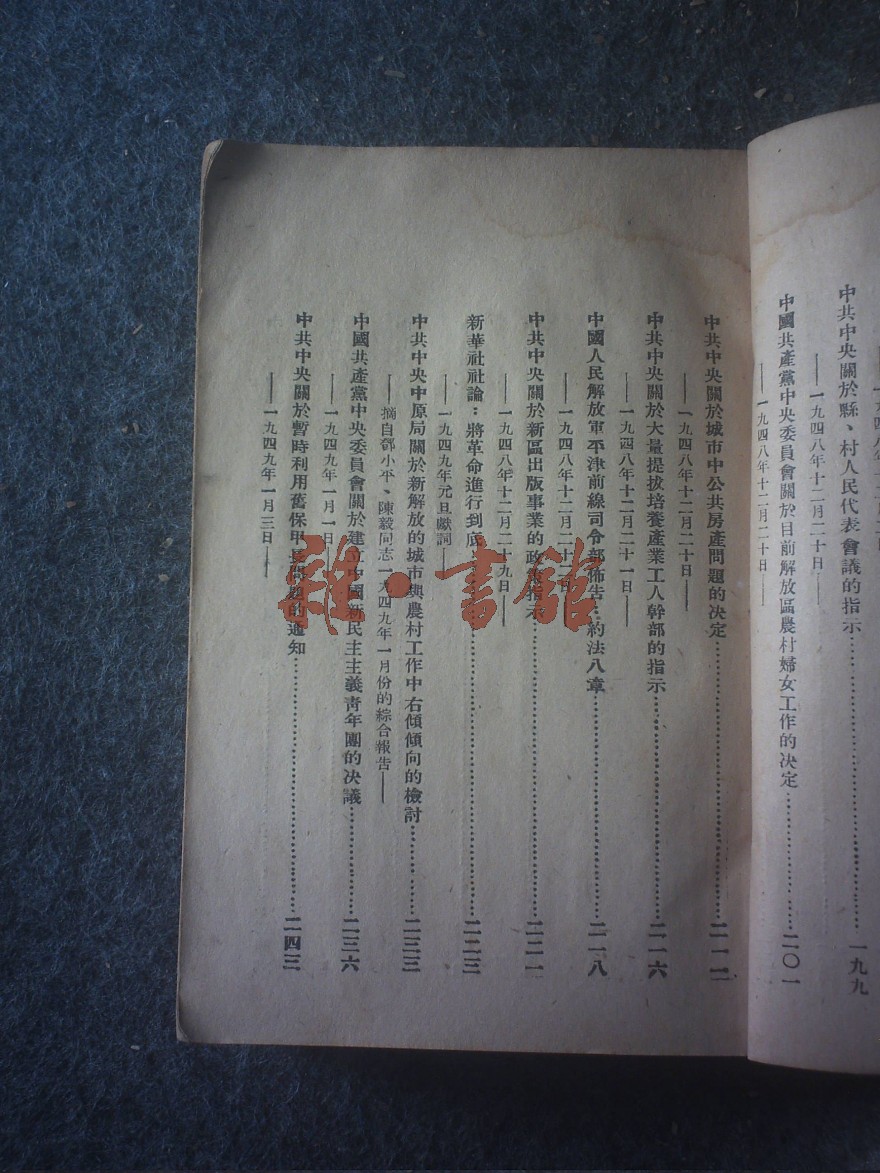 中共中央關於縣、村人民代表會議的指示 一九九
——一九四八年十二月二十日——
中國共產黨中央委員會關於目前解放區農村婦女工作的決定 二〇一
——一九四八年十二月二十日——
中共中央關於城市中公共房產問題的決定 二一二
——一九四八年十二月二十日——
中共中央關於大量提拔培養產業工人幹部的指示 二一六
——一九四八年十二月二十一日——
中國人民解放軍平津前線司令部佈告：約法八章 二一八
——一九四八年十二月二十二日——
中共中央關於新區出版事業的政策指示 二二一
——一九四八年十二月二十九日——
新華社社論：將革命進行到底 二二三
——一九四九年元旦獻詞——
中共中央中原局關於新解放的城市與農村工作中右傾傾向的檢討 二三三
——摘自鄧小平、陳毅同志一九四九年一月份的綜合報告——
中國共產黨中央委員會關於建立中國新民主主義青年團的決議 二三六
——一九四九年一月一日——
中共中央關於暫時利用舊保甲長問題的通知 二四三
——一九四九年一月三日——
雜·書館